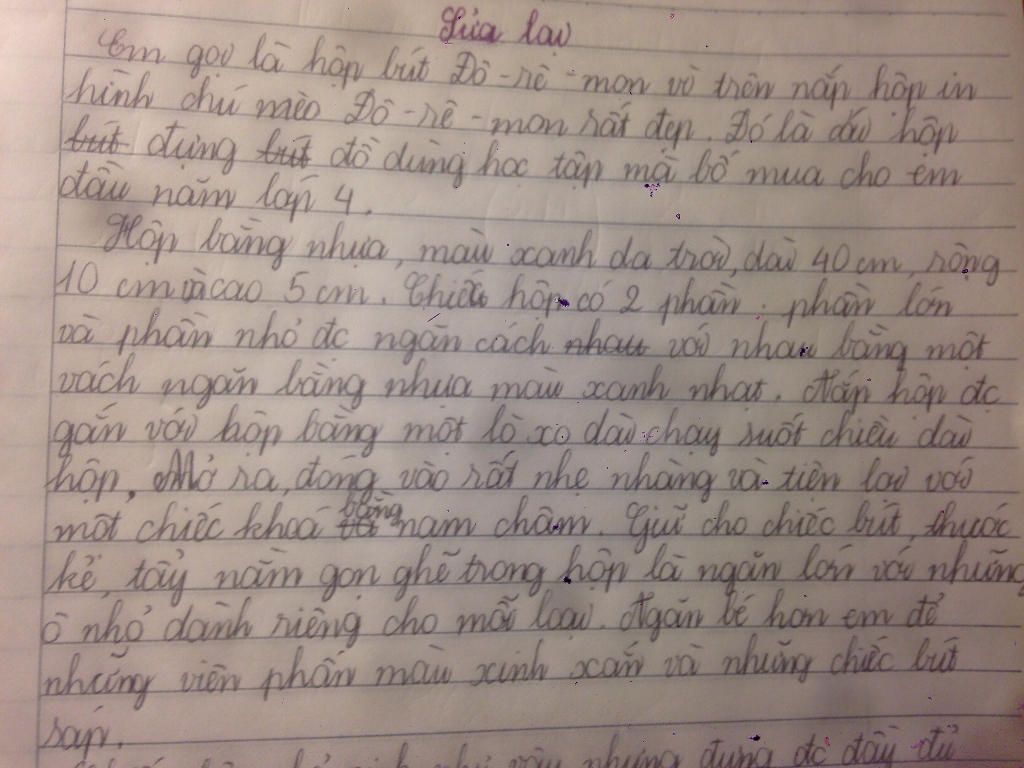 Sửa lại
Em gọi là hộp bút Đô-rê-mon vì trên nắp hộp in
hình chú mèo Đô-rê-mon rất đẹp. Đó là cái hộp
bút đựng bút đồ dùng học tập mà bố mua cho em
đầu năm lớp 4.
Hộp bằng nhựa, màu xanh da trời, dài 40 cm, rộng
10 cm và cao 5 cm. Chiếc hộp có 2 phần: phần lớn
và phần nhỏ đc ngăn cách nhau với nhau bằng một
vách ngăn bằng nhựa màu xanh nhạt. Nắp hộp đc
gắn với hộp bằng một lò xo dài chạy suốt chiều dài
hộp. Mở ra, đóng vào rất nhẹ nhàng và tiện lợi với
một chiếc khoá bằng nam châm. Giữ cho chiếc bút, thước
kẻ, tẩy nằm gọn ghẽ trong hộp là ngăn lớn với những
ô nhỏ dành riêng cho mỗi loại. Ngăn bé hơn em để
những viên phấn màu xinh xắn và những chiếc bút
sáp.
nhưng đựng đc đầy đủ